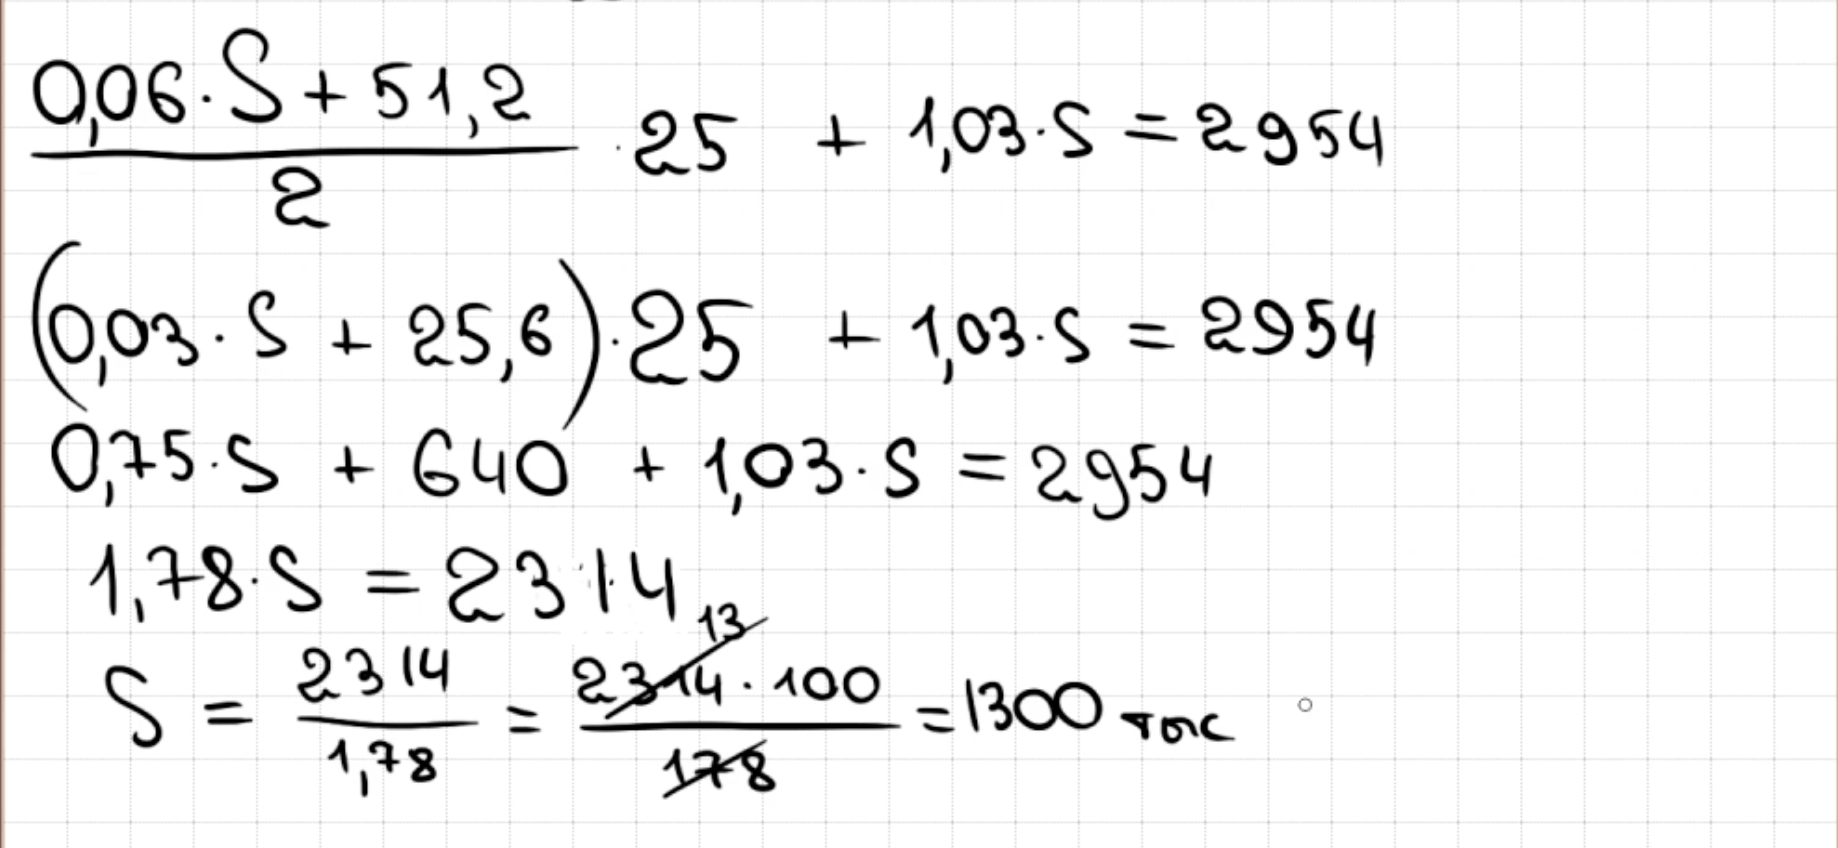 (0,06·S + 51,2)/2 · 25 + 1,03·S = 2954
(0,03·S + 25,6)·25 + 1,03·S = 2954
0,75·S + 640 + 1,03·S = 2954
1,78·S = 2314
S = 2314/1,78 = 2314·100/178 = 1300 тыс
13